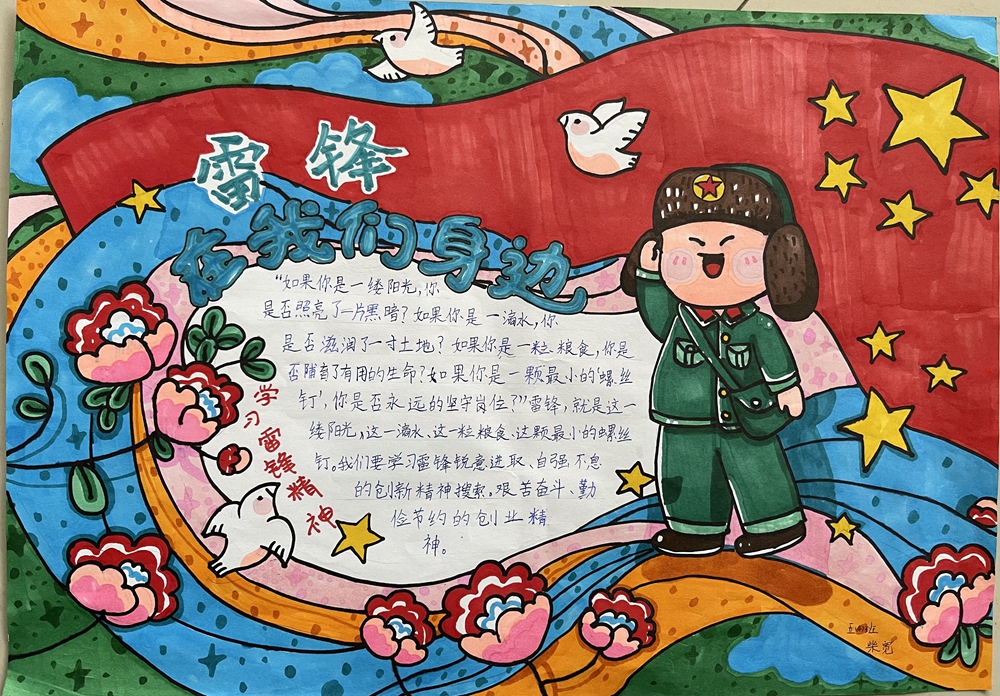 雷锋
在我们身边
"如果你是一缕阳光,你
是否照亮了一片黑暗?如果你是一滴水,你
是否滋润了一寸土地?如果你是一粒粮食,你是
否哺育了有用的生命?如果你是一颗最小的'螺丝
钉',你是否永远的坚守岗位?"雷锋,就是这一
缕阳光,这一滴水、这一粒粮食、这颗最小的螺丝
钉。我们要学习雷锋锐意进取、自强不息
的创新精神搜索,艰苦奋斗、勤
俭节约的创业精
神。
学习雷锋精神
五四班
柴宽